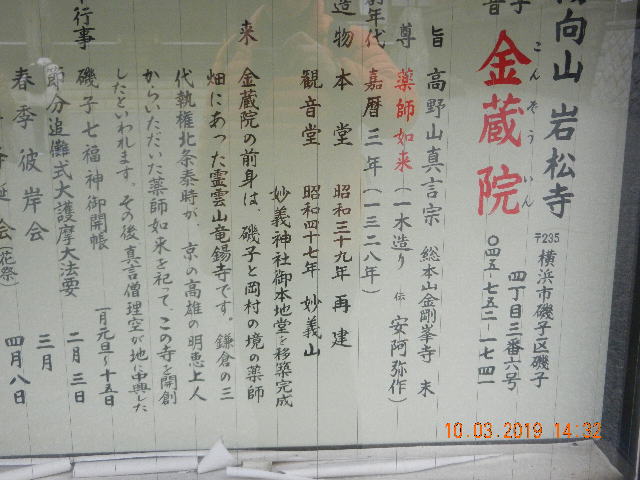 向山 岩松寺
金蔵院
こんぞういん
〒235 横浜市磯子区磯子
四丁目三番六号
〇四五-七五二-一七四一
旨 高野山真言宗 総本山金剛峯寺 末
尊 薬師如来 (一木造り 伝 安阿弥作)
創年代 嘉暦三年(一三二八年)
造物 本堂 昭和三十九年 再建
観音堂 昭和四十七年 妙義山
妙義神社御本地堂を移築完成
来 金蔵院の前身は、磯子と岡村の境の薬師
畑にあった霊雲山竜錫寺です。鎌倉の三
代執権北条泰時が、京の高雄の明恵上人
からいただいた薬師如来を祀て、この寺を開創
したといわれます。その後真言僧理空が地に中興した
行事 磯子七福神御開帳 一月元旦〜十五日
節分追儺式大護摩大法要 二月三日
春季彼岸会 三月
会(花祭) 四月八日
10.03.2019 14:32